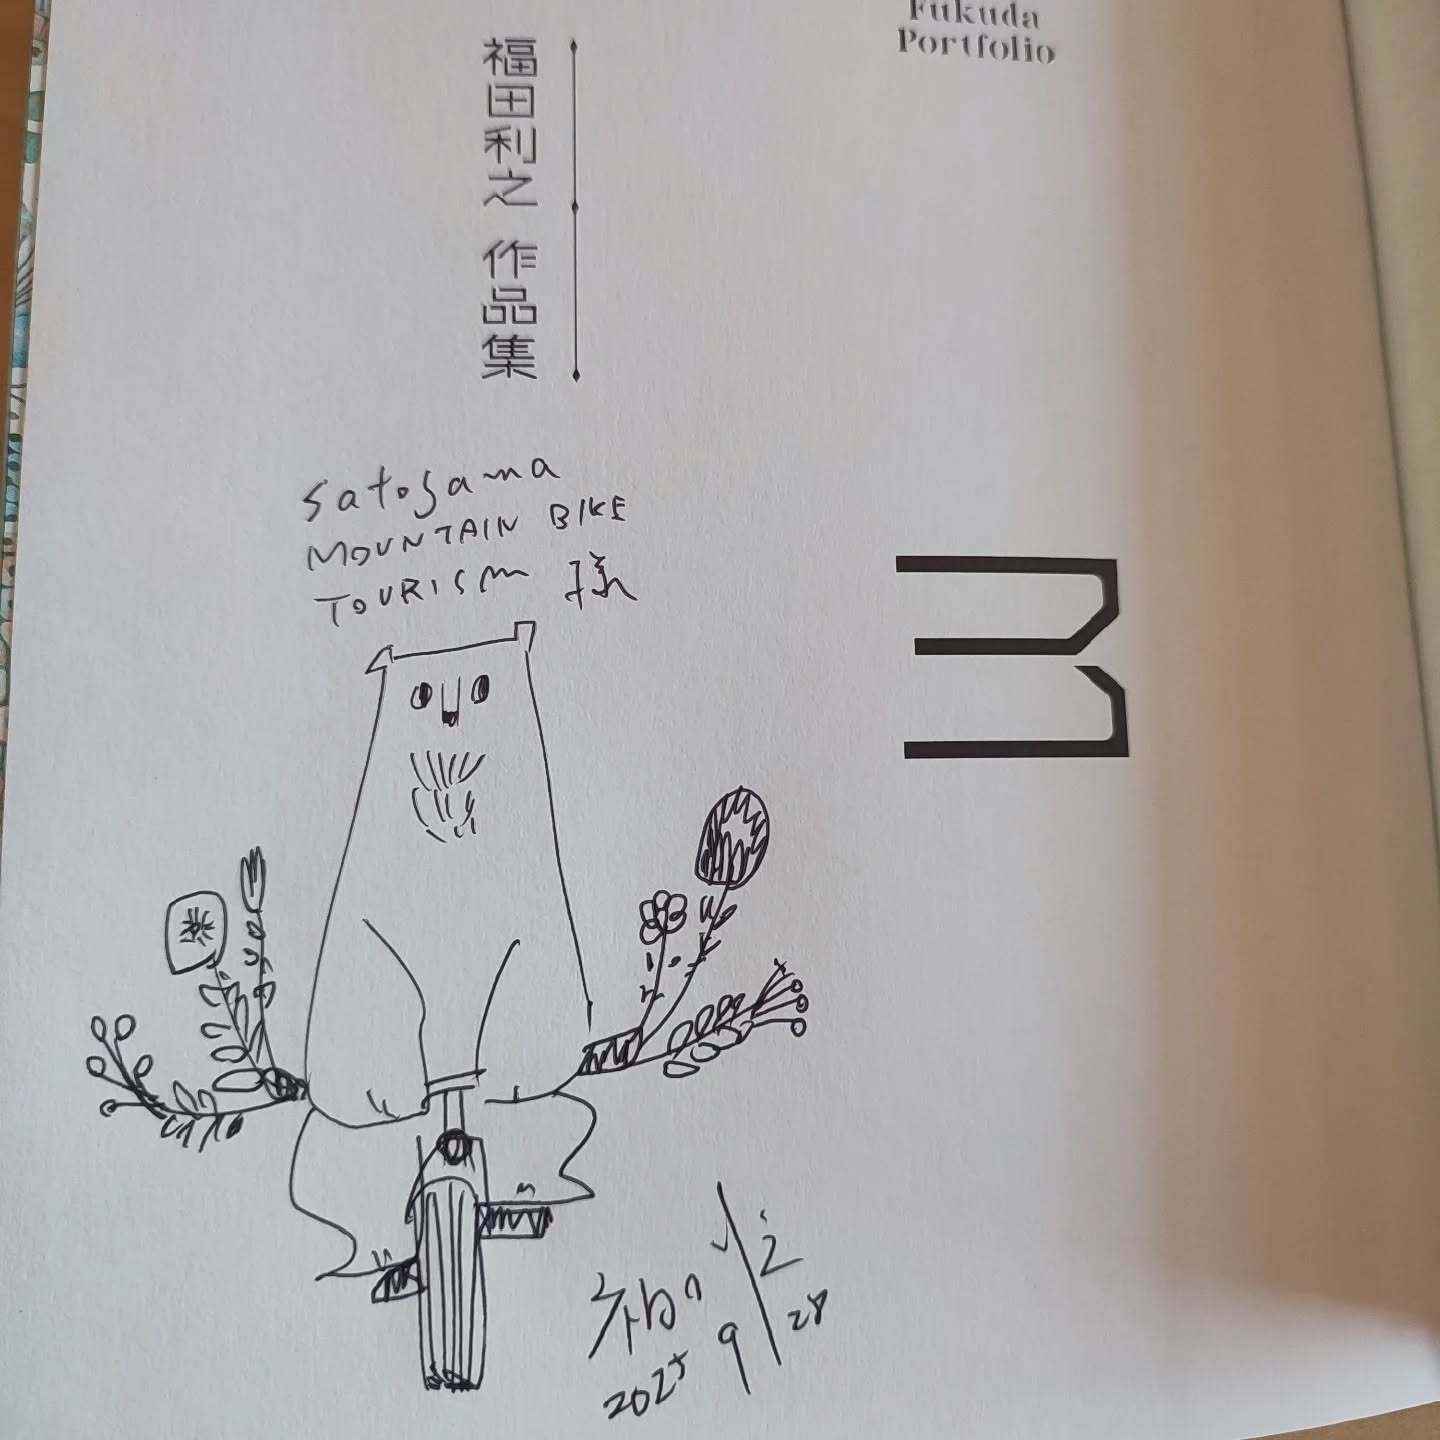 Fukuda
Portfolio
福田利之 作品集
Satoyama
MOUNTAIN BIKE
TOURISM 様
2025 9/28